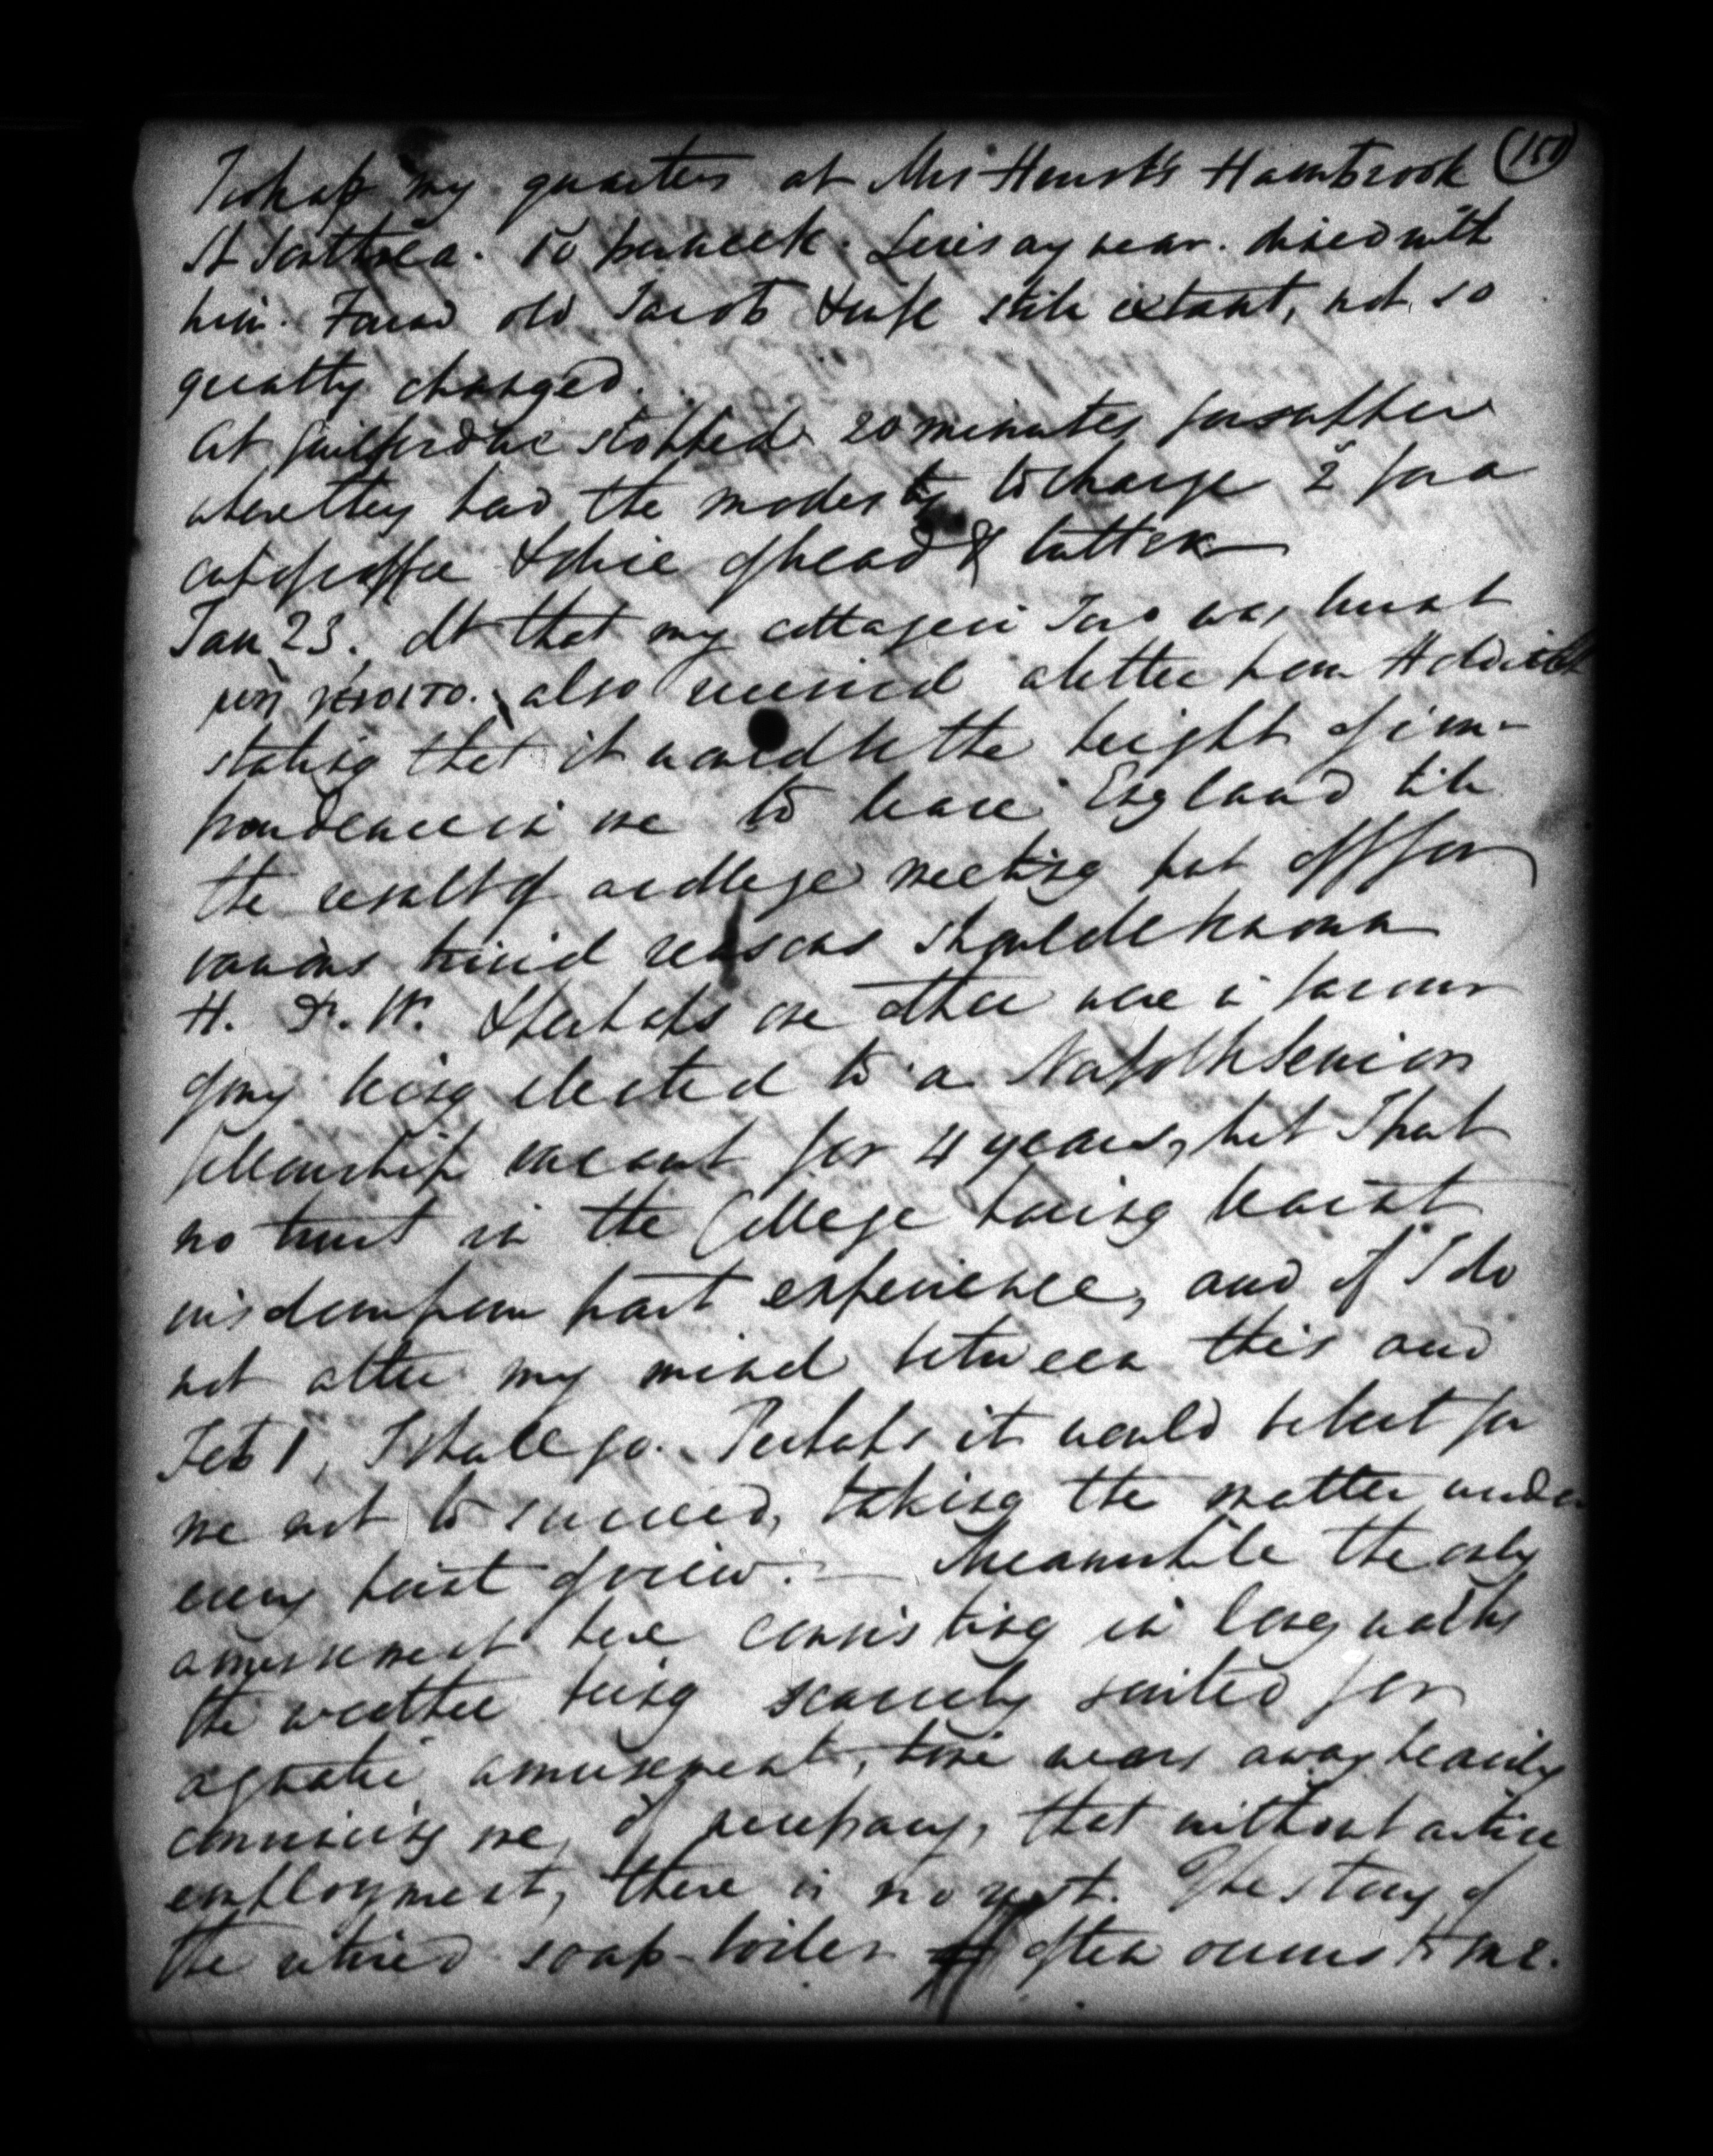 (150)
Took up my quarters at Mrs Hursts Hambrook
St Southsea. 10 per week. Lewis any near. dined with
him. Found old Jacob & wife still extant, not so
greatly changed.
At Guilford we stopped 20 minutes for supper
where they had the modesty to charge 2s for a
cup of coffee & slice of bread & butter
Jan 23. dt that my cottage in was burnt
also received a letter from Holditch
stating that it would be the height of im-
prudence in me to leave England till
the result of a college meeting put off for
various trivial reasons should be known
H. & W. & perhaps one other were in favour
of my being elected to a Norfolk Senior
fellowship vacant for 4 years, but I put
no trust in the College having learnt
wisdom from past experience, and if I do
not alter my mind between this and
Feb 1, I shall go. Perhaps it would be best for
me not to succeed, taking the matter under
every point of view. — Meanwhile the only
amusement here consisting in long walks
the weather being scarcely suited for
aquatic amusement, time wears away heavily
convincing me, if necessary, that without active
employment, there is no rest. The story of
the retired soap-boiler often occurs to me.